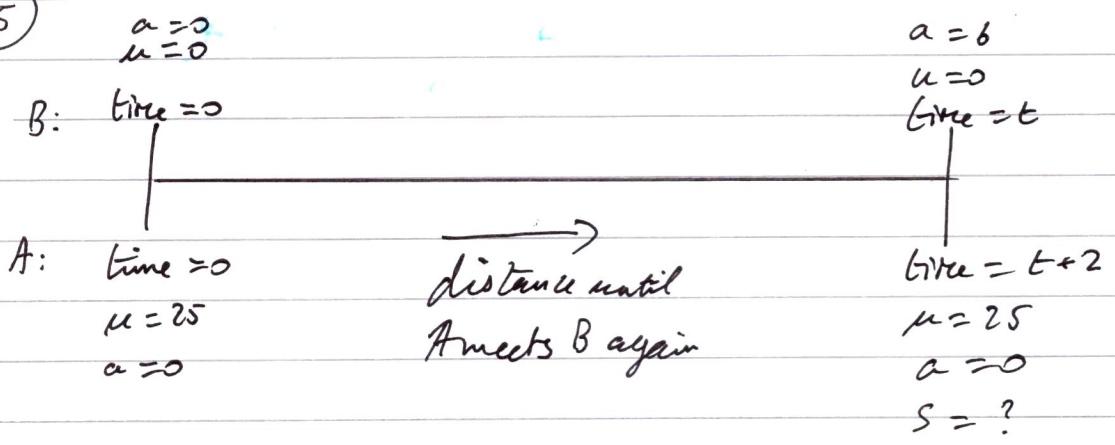 5
a = 0
u = 0
B: time = 0
a = 6
u = 0
time = t
A: time = 0
u = 25
a = 0
distance until
A meets B again
time = t + 2
u = 25
a = 0
S = ?